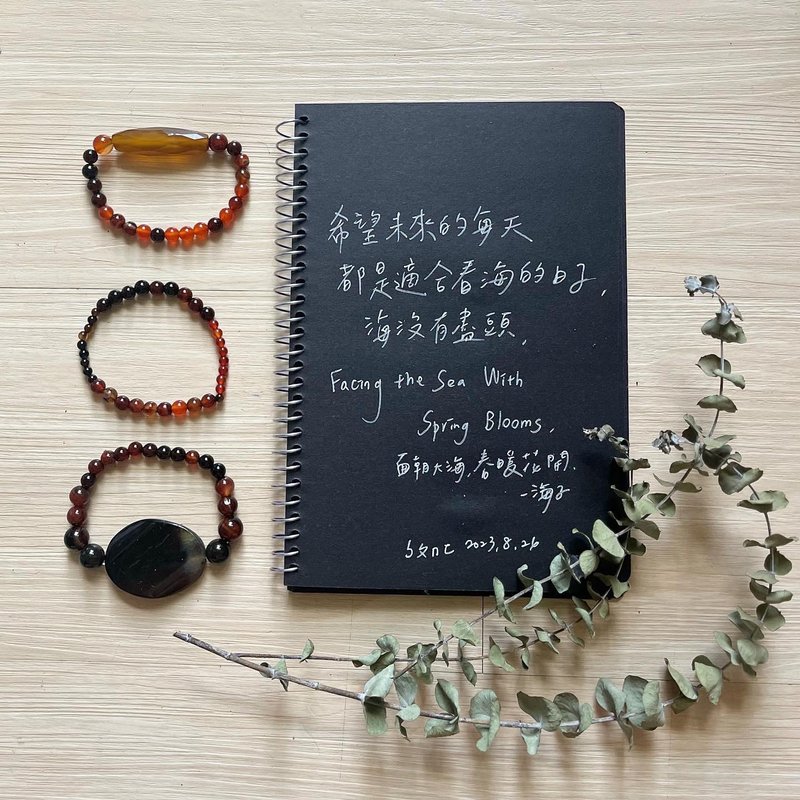 希望未來的每天
都是適合看海的日子,
海沒有盡頭,
Facing the Sea With
Spring Blooms,
面朝大海,春暖花開.
-海子
2023.8.26